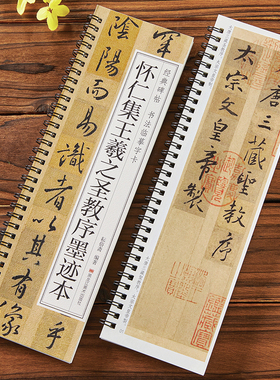 窮
乎
陰陽而易識者以其有像
经典碑帖 书法临摹字卡
怀仁集王羲之圣教序墨迹本
唐三藏聖教序
太宗文皇帝製